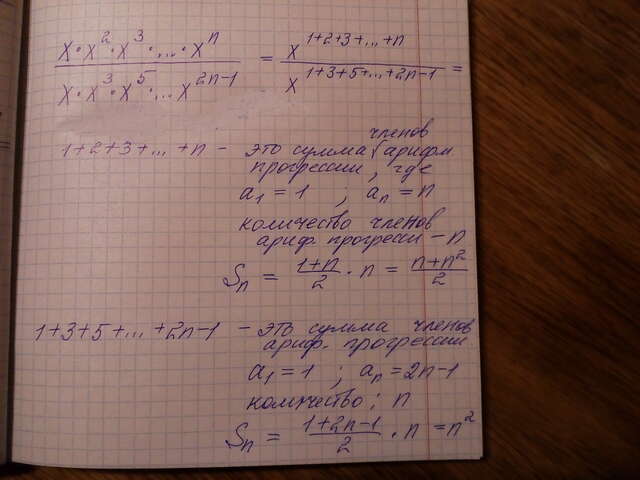 x·x²·x³·...·xⁿ / x·x³·x⁵·...x²ⁿ⁻¹ = x^(1+2+3+...+n) / x^(1+3+5+...+2n-1) =
1+2+3+...+n - это сумма членов арифм.
прогрессии, где
a₁ = 1 ; aₙ = n
количество членов
ариф. прогрессии - n
Sₙ = (1+n)/2 · n = (n+n²)/2
1+3+5+...+2n-1 - это сумма членов
ариф. прогрессии
a₁ = 1 ; aₙ = 2n-1
количество: n
Sₙ = (1+2n-1)/2 · n = n²